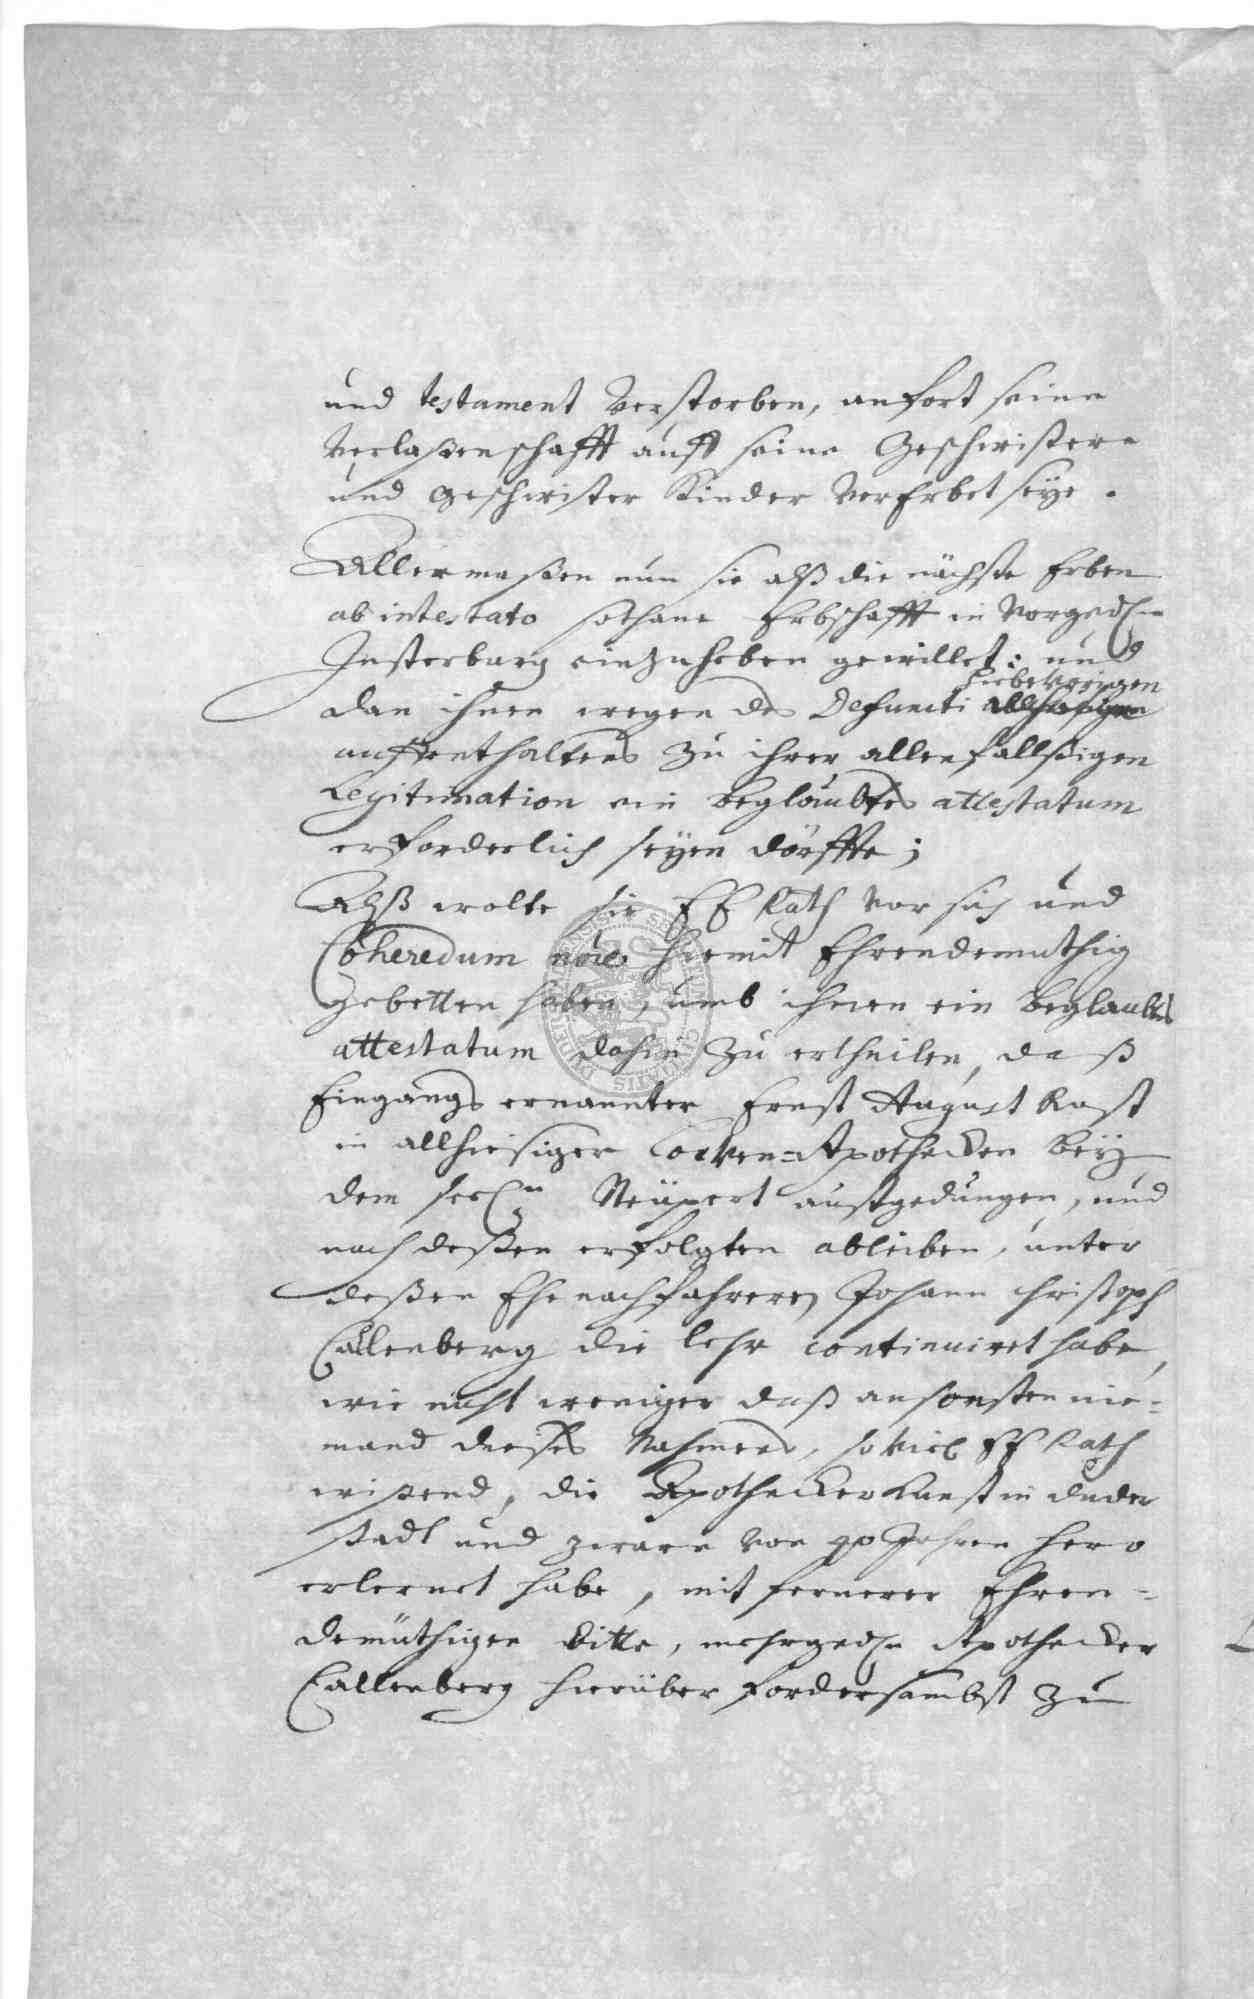 und testament verstorben, anfort seine
Verlaßenschafft auff seine Geschwistere
und Geschwister Kinder vererbet seye.
Allermaßen nun sie alß die nächste Erben
ab intestato sothane Erbschafft in vorged.
Insterburg einzuheben gewillet; und
hiebevorigen
dan ihnen wegen des Defuncti
auffenthaltens zu ihrer allenfallßigen
Legitimation ein beglaubtes attestatum
erforderlich seyen dörffte;
Alß wolte sie EE Rath vor sich und
Coheredum noie hiemit Ehrendemuthig
gebetten haben, umb ihnen ein beglaubtes
attestatum dahin zu ertheilen, daß
Eingangs ernannter Ernst August Rast
in allhiesiger Apothecken bey
dem Neüpert außgedungen, und
nach deßen erfolgten ableiben, unter
deßen Ehenachfahreren Johann Christoph
Callenberg die lehr continuiret habe,
wie nicht weniger daß ansonsten nie=
mand dieses Nahmens, so viel EE Rath
wißend, die Apothecker Kunst in Duder
stadt und zwarn von 90 Jahren hero
erlernet habe, mit fernerer Ehren=
demüthigen bitte, mehrged. Apothecker
Callenberg hierüber fordersambst zu
SIGILLUM CIVITATIS DUDERSTADENSIS